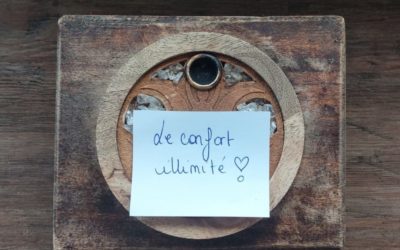 Le confort
illimité ♡!